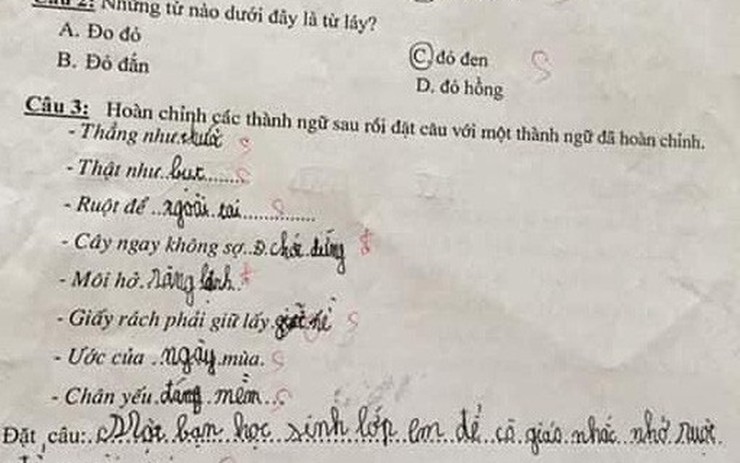 Câu 2: Những từ nào dưới đây là từ láy?
A. Đo đỏ
C. đỏ đen
B. Đỏ đắn
D. đỏ hồng
Câu 3: Hoàn chỉnh các thành ngữ sau rồi đặt câu với một thành ngữ đã hoàn chỉnh.
- Thẳng như
- Thật như..but......
- Ruột để ..ngoài.tai............
- Cây ngay không sợ..Đ.chết.đứng
- Môi hở.răng lạnh..
- Giấy rách phải giữ lấy
- Ước của .ngày.mùa.
- Chân yếu.đáng.mềm...
Đặt câu:..Một.bạn.học.sinh lớp.em.để..cô.giáo.nhắc..nhở.ruột.